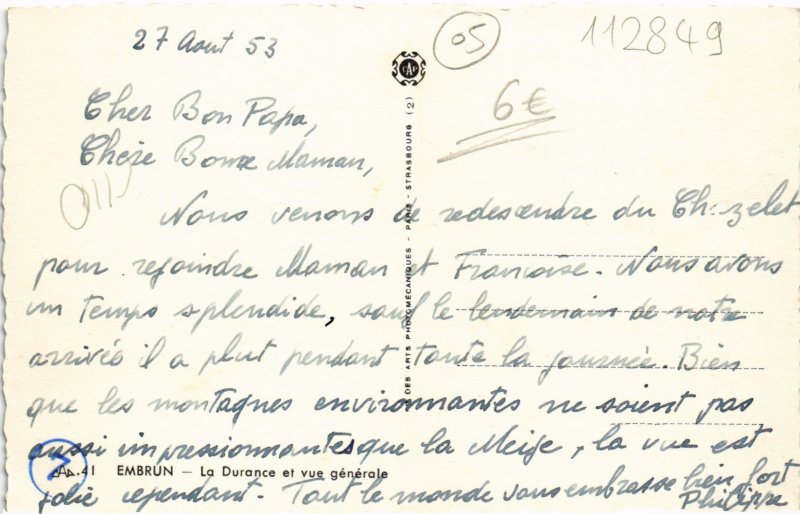 27 Aout 53
05
112849
CAP
6€
Cher Bon Papa,
Chère Bonne Maman,
Nous venons de redescendre du Chazelet
pour rejoindre Maman et Françoise. Nous avons
un temps splendide, sauf le lendemain de notre
arrivée il a plut pendant toute la journée. Bien
que les montagnes environnantes ne soient pas
aussi impressionnantes que la Meije, la vue est
jolie cependant. Tout le monde vous embrasse bien fort
Philippe
41 EMBRUN — La Durance et vue générale
DES ARTS PHOTOMÉCANIQUES - PARIS - STRASBOURG (2)